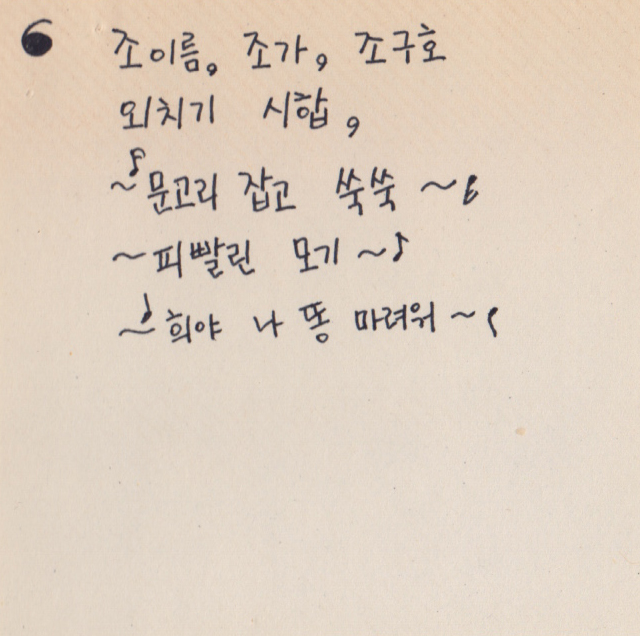 6 조이름, 조가, 조구호
외치기 시합,
~♪문고리 잡고 쓱쓱~♪
~피빨린 모기~♪
~♪희야 나 똥 마려워~♪